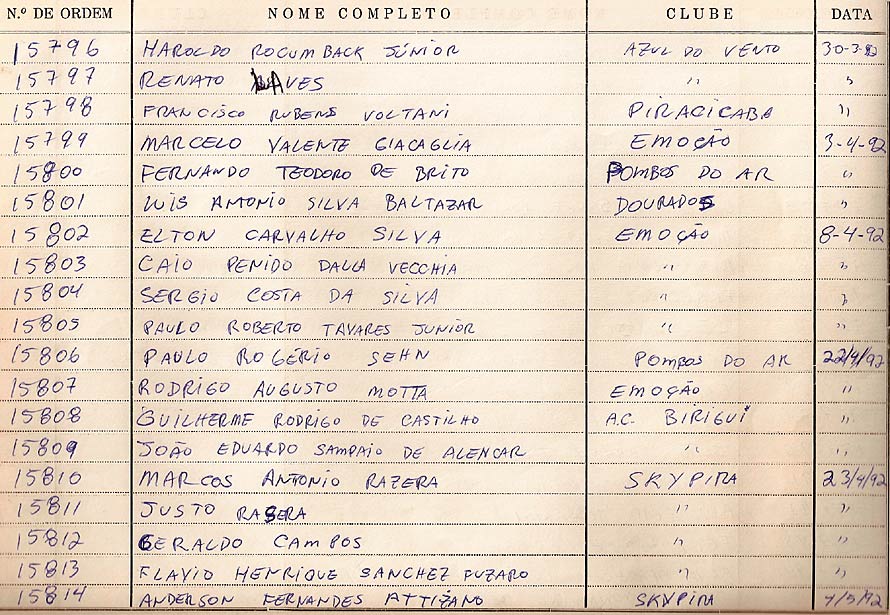 N.º DE ORDEM NOME COMPLETO CLUBE DATA
15796 HAROLDO ROCUMBACK JÚNIOR AZUL DO VENTO 30-3-92
15797 RENATO ALVES " "
15798 FRANCISCO RUBENS VOLTANI PIRACICABA "
15799 MARCELO VALENTE GIACAGLIA EMOÇÃO 3-4-92
15800 FERNANDO TEODORO DE BRITO POMBOS DO AR "
15801 LUIS ANTONIO SILVA BALTAZAR DOURADOS "
15802 ELTON CARVALHO SILVA EMOÇÃO 8-4-92
15803 CAIO PENIDO DALLA VECCHIA " "
15804 SERGIO COSTA DA SILVA " "
15805 PAULO ROBERTO TAVARES JUNIOR " "
15806 PAULO ROGÉRIO SEHN POMBOS DO AR 22/4/92
15807 RODRIGO AUGUSTO MOTTA EMOÇÃO "
15808 GUILHERME RODRIGO DE CASTILHO A.C. BIRIGUI "
15809 JOÃO EDUARDO SAMPAIO DE ALENCAR " "
15810 MARCOS ANTONIO RAZERA SKYPIRA 23/4/92
15811 JUSTO RASERA " "
15812 GERALDO CAMPOS " "
15813 FLAVIO HENRIQUE SANCHEZ FUZARO " "
15814 ANDERSON FERNANDES ATTIZANO SKYPIRA 4/5/92